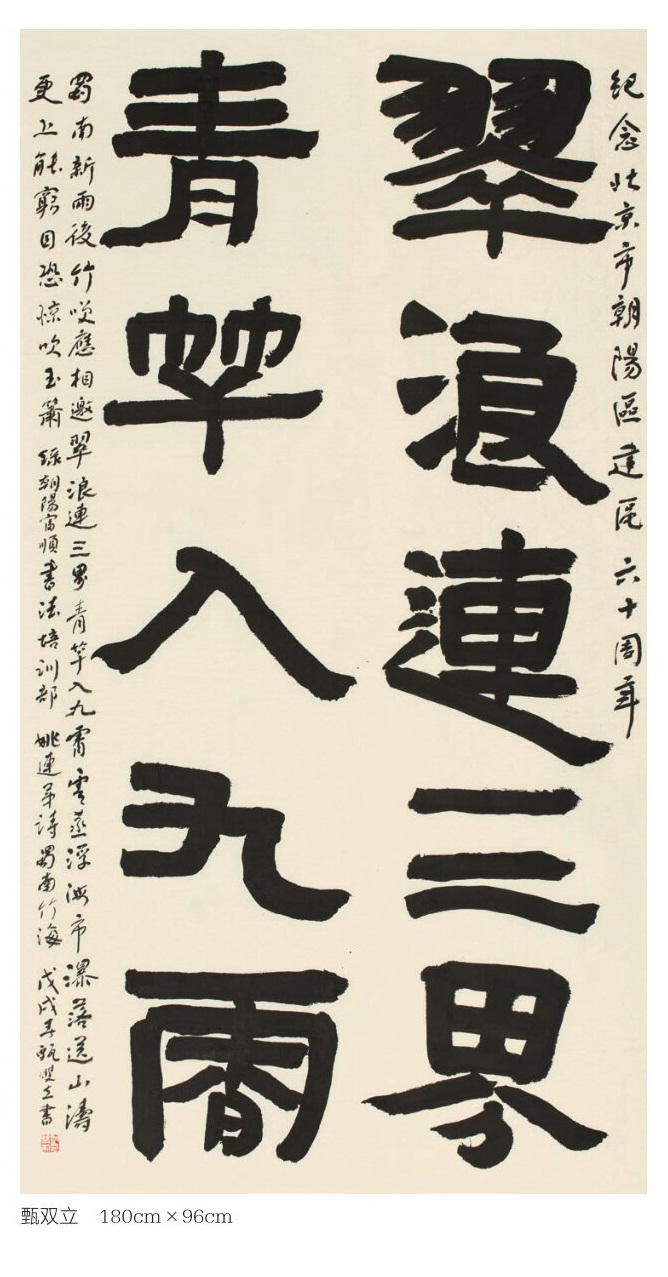 紀念北京市朝陽區建區六十周年
翠浪連三界
青竿入九霄
蜀南新雨後竹咲應相邀翠浪連三界青竿入九霄雲蒸浮海市瀑落送山濤
更上能窮目恐惊吹玉簫 錄朝陽富順書法培訓部 姚連詩蜀南竹海 戊戌甄雙立書
甄双立 180cm×96cm